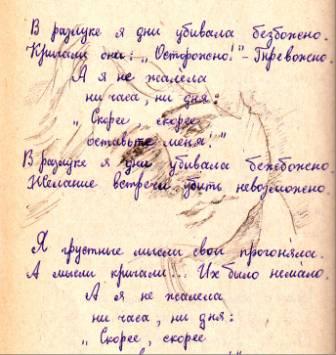 В разлуке я дни убивала безбожно.
Кричали они: „Осторожно!" – Тревожно.
А я не жалела
ни часа, ни дня:
„Скорее скорее
оставьте меня!"
В разлуке я дни убивала безбожно.
Желание встречи убить невозможно.
Я грустные мысли свои прогоняла.
А мысли кричали... Их было немало.
А я не жалела
ни часа, ни дня:
„Скорее, скорее